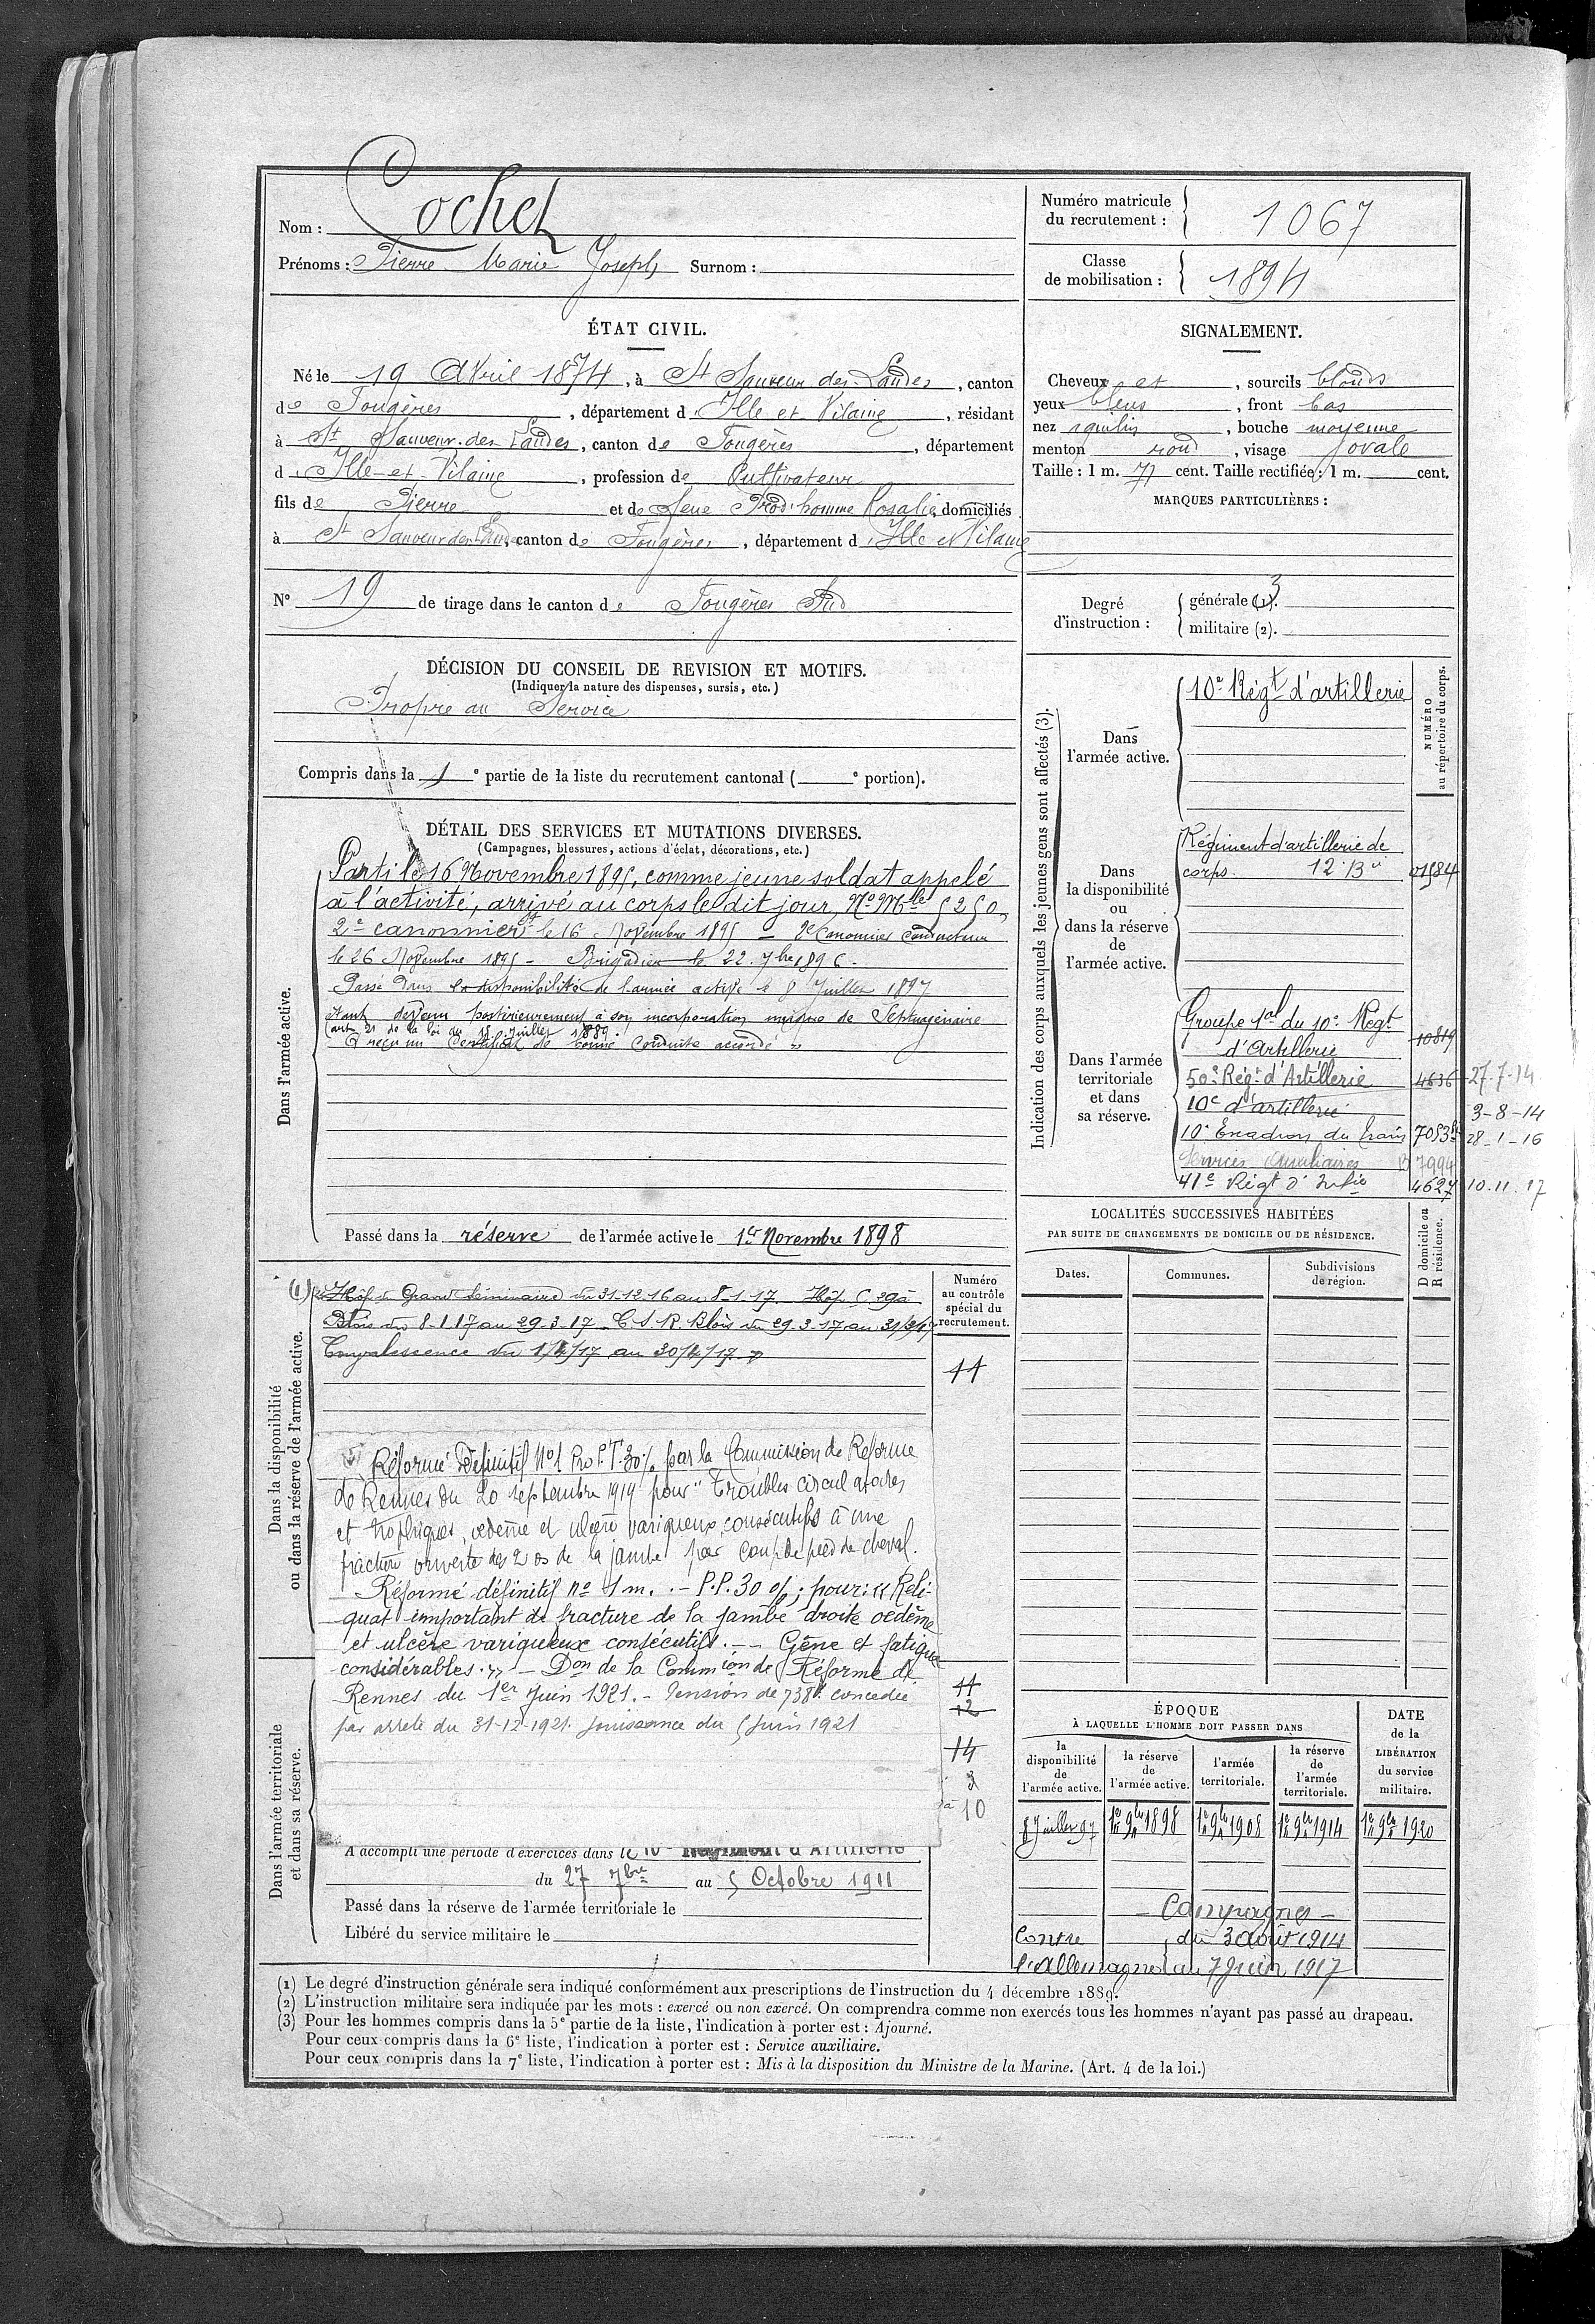 Nom : Cochet
Prénoms : Pierre Marie Joseph Surnom :
Numéro matricule du recrutement : 1067
Classe de mobilisation : 1894
ÉTAT CIVIL.
Né le 19 Avril 1874, à St Sauveur des Landes, canton
de Fougères, département d'Ille et Vilaine, résidant
à St Sauveur des Landes, canton de Fougères, département
d'Ille-et-Vilaine, profession de Cultivateur
fils de Pierre et de feue Prod'homme Rosalie, domiciliés
à St Sauveur des Landes, canton de Fougères, département d'Ille et Vilaine
N° 19 de tirage dans le canton de Fougères Sud
SIGNALEMENT.
Cheveux et, sourcils blonds
yeux bleus, front bas
nez aquilin, bouche moyenne
menton rond, visage ovale
Taille : 1 m. 71 cent. Taille rectifiée : 1 m. cent.
MARQUES PARTICULIÈRES :
Degré d'instruction : générale (1). 3
militaire (2).
DÉCISION DU CONSEIL DE REVISION ET MOTIFS.
(Indiquer la nature des dispenses, sursis, etc.)
Propre au Service
Compris dans la 1e partie de la liste du recrutement cantonal ( e portion).
DÉTAIL DES SERVICES ET MUTATIONS DIVERSES.
(Campagnes, blessures, actions d'éclat, décorations, etc.)
Dans l'armée active.
Parti le 16 Novembre 1895, comme jeune soldat appelé
à l'activité, arrivé au corps le dit jour, No Mle 5250
2e canonnier le 16 Novembre 1895 – 2e Canonnier Conducteur
le 26 Novembre 1895 – Brigadier le 22 7bre 1896.
Passé dans la disponibilité de l'armée active le 8 Juillet 1897
étant devenu postérieurement à son incorporation unique de Septuagénaire
(art. 21 de la loi du 15 Juillet 1889.
A reçu un Certificat de bonne conduite accordé »
Passé dans la réserve de l'armée active le 1er Novembre 1898
Indication des corps auxquels les jeunes gens sont affectés (3).
NUMÉRO au répertoire du corps.
Dans l'armée active.
10e Régt d'artillerie
Dans la disponibilité ou dans la réserve de l'armée active.
Régiment d'artillerie de
corps. 12 Bie 01584
Dans l'armée territoriale et dans sa réserve.
Groupe tal du 10e Régt
d'Artillerie 10819
50e Régt d'Artillerie 4636 27-7-14
10e d'artillerie 3-8-14
10e Escadron du train 7053 28-1-16
Services Auxiliaires 7994
41e Régt d'Infie 4627 10.11.17
LOCALITÉS SUCCESSIVES HABITÉES
PAR SUITE DE CHANGEMENTS DE DOMICILE OU DE RÉSIDENCE.
D domicile ou R résidence.
Dates. Communes. Subdivisions de région.
Dans la disponibilité ou dans la réserve de l'armée active.
Numéro au contrôle spécial du recrutement.
(1) Hôp. Grand Séminaire du 31-12-16 au 8-1-17 Hôp. C 29 à
Blois du 8-1-17 au 29-3-17 C.S.R. Blois du 29-3-17 au 31/3/17
Convalescence du 1/4/17 au 30/4/17
11
Réformé Définitif No1 Pro P.T. 30% par la Commission de Réforme
de Rennes du 20 septembre 1919 pour "Troubles circulatoires
et trophiques, oedème et ulcère variqueux, consécutifs à une
fracture ouverte des 2 os de la jambe par coup de pied de cheval.
– Réformé définitif no 1 m. – P.P. 30 %; pour: "Reli-
quat important de fracture de la jambe droite oedème
et ulcère variqueux consécutifs. – – Gêne et fatigue
considérables." – Don de la Commion de Réforme de
Rennes du 1er Juin 1921. – Pension de 738f. concédée
par arrêté du 31-12-1921. jouissance du 5 Juin 1921
11
12
14
2
à 10
Dans l'armée territoriale et dans sa réserve.
A accompli une période d'exercices dans le 10e Régiment d'Artillerie
du 27 7bre au 5 Octobre 1911
Passé dans la réserve de l'armée territoriale le
Libéré du service militaire le
ÉPOQUE
À LAQUELLE L'HOMME DOIT PASSER DANS
la disponibilité de l'armée active. la réserve de l'armée active. l'armée territoriale. la réserve de l'armée territoriale.
DATE de la LIBÉRATION du service militaire.
8 Juillet 97 1er 9bre 1898 1er 9bre 1908 1er 9bre 1914 1er 9bre 1920
– Campagnes –
Contre du 3 août 1914
l'Allemagne au 7 juin 1917
(1) Le degré d'instruction générale sera indiqué conformément aux prescriptions de l'instruction du 4 décembre 1889.
(2) L'instruction militaire sera indiquée par les mots : exercé ou non exercé. On comprendra comme non exercés tous les hommes n'ayant pas passé au drapeau.
(3) Pour les hommes compris dans la 5e partie de la liste, l'indication à porter est : Ajourné.
Pour ceux compris dans la 6e liste, l'indication à porter est : Service auxiliaire.
Pour ceux compris dans la 7e liste, l'indication à porter est : Mis à la disposition du Ministre de la Marine. (Art. 4 de la loi.)